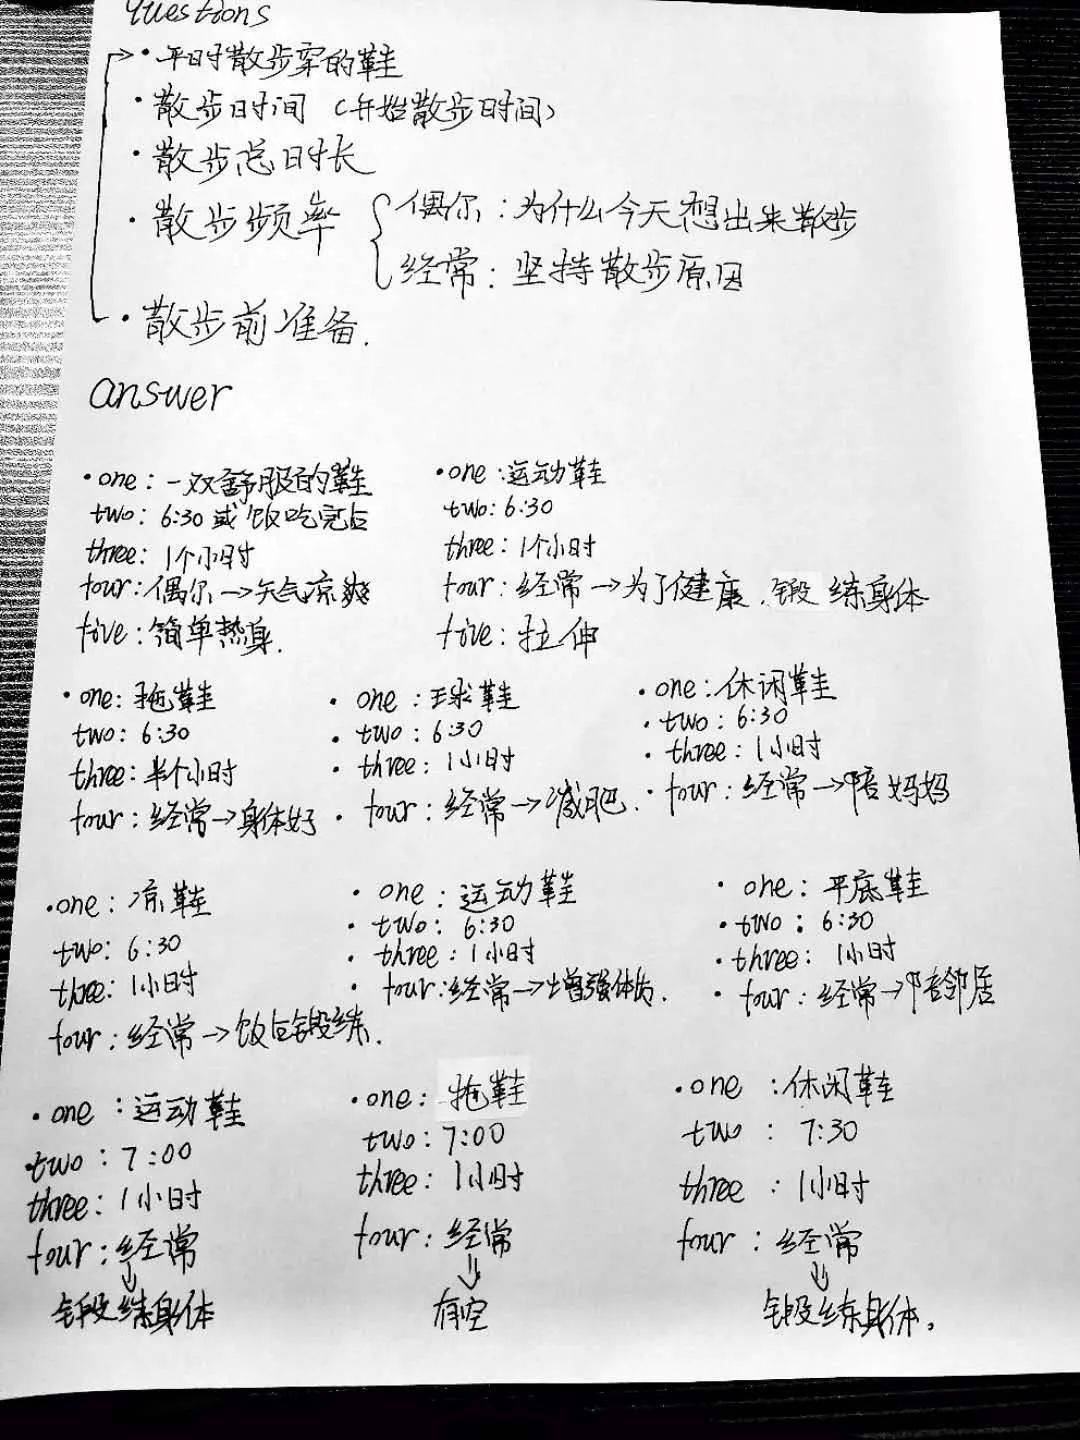 Questions
·平时散步穿的鞋
·散步时间（开始散步时间）
·散步总时长
·散步频率
偶尔：为什么今天想出来散步
经常：坚持散步原因
·散步前准备.
answer
·one：一双舒服的鞋
two：6:30或饭吃完后
three：1个小时
four：偶尔→天气凉爽
five：简单热身.
·one：运动鞋
two：6:30
three：1个小时
four：经常→为了健康、锻练身体
five：拉伸
·one：拖鞋
two：6:30
three：半个小时
four：经常→身体好
·one：球鞋
·two：6:30
·three：1小时
·four：经常→减肥.
·one：休闲鞋
·two：6:30
·three：1小时
·four：经常→陪妈妈
·one：凉鞋
two：6:30
three：1小时
four：经常→饭后锻练.
·one：运动鞋
·two：6:30
·three：1小时
·four：经常→增强体质.
·one：平底鞋
·two：6:30
·three：1小时
·four：经常→陪邻居
·one：运动鞋
·two：7:00
three：1小时
four：经常
↓
锻练身体
·one：拖鞋
two：7:00
three：1小时
four：经常
↓
有空
·one：休闲鞋
two：7:30
three：1小时
four：经常
↓
锻练身体.